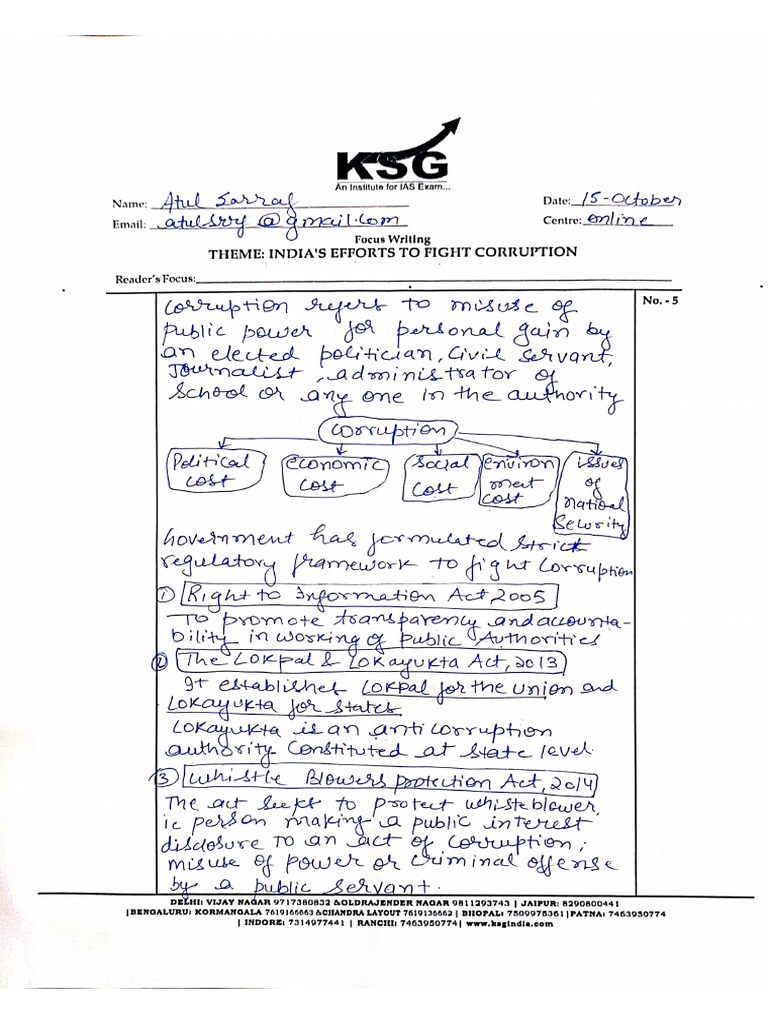 KSG
An Institute for IAS Exam...
Name: Atul Sarraf
Date: 15-October
Email: atulsrry@gmail.com
Centre: online
Focus Writing
THEME: INDIA'S EFFORTS TO FIGHT CORRUPTION
Reader's Focus:
No. - 5
Corruption refers to misuse of
public power for personal gain by
an elected politician, Civil servant,
Journalist, administrator of
School or any one in the authority
corruption
Political cost
economic cost
social cost
environ ment cost
issues of national security
Government has formulated strick
regulatory framework to fight corruption
① Right to Information Act, 2005
To promote transparency and accounta-
bility in working of public Authorities
② The Lokpal & Lokayukta Act, 2013
It establishes Lokpal for the union and
Lokayukta for states
Lokayukta is an anti corruption
authority constituted at state level.
③ Whistle Blowers protection Act, 2014
The act seeks to protect whisteblower,
ie person making a public interest
disclosure to an act of corruption,
misuse of power or criminal offense
by a public servant.
DELHI: VIJAY NAGAR 9717380832 &OLDRAJENDER NAGAR 9811293743 | JAIPUR: 8290800441
|BENGALURU: KORMANGALA 7619166663 &CHANDRA LAYOUT 7619136662 | BHOPAL: 7509975361|PATNA: 7463950774
| INDORE: 7314977441 | RANCHI: 7463950774| www.ksgindia.com